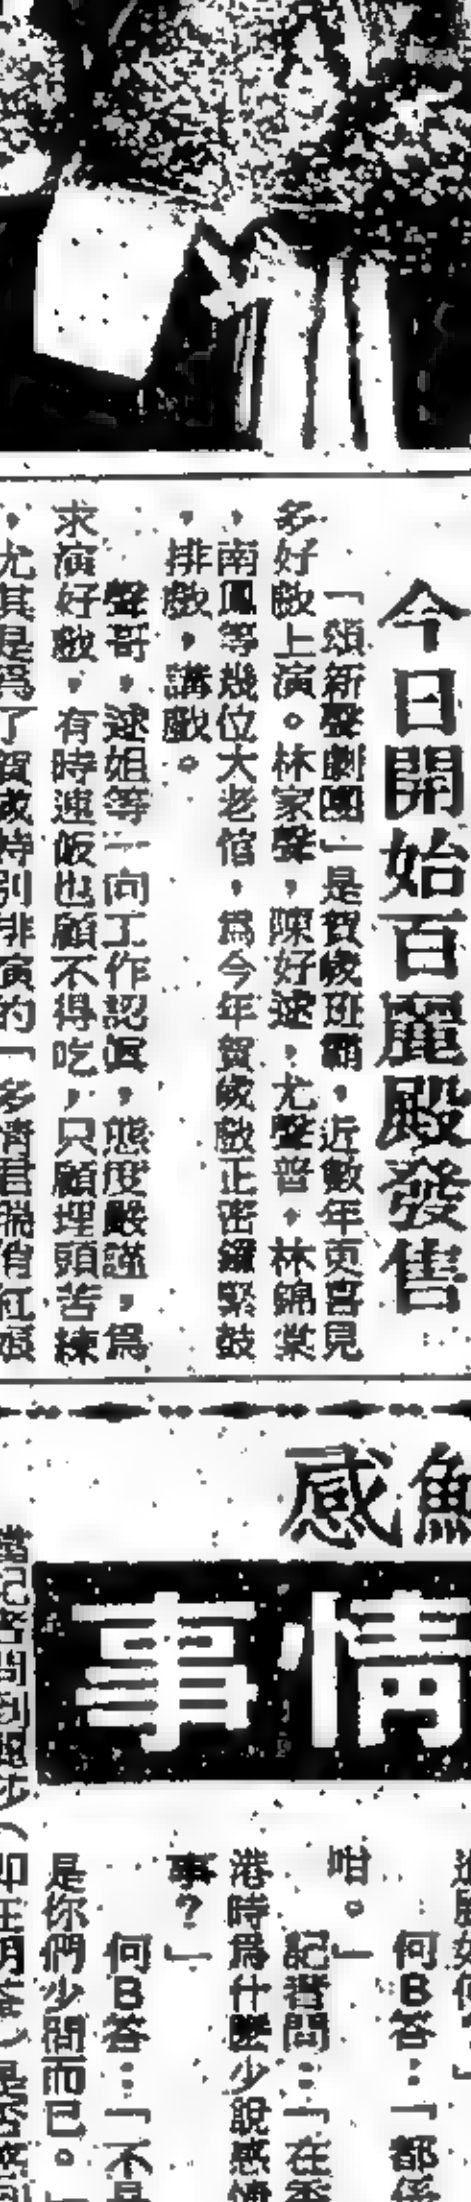 今日開始百麗殿發售
「頌新聲劇團」是賀歲班霸,近數年更喜見
多好戲上演。林家聲,陳好逑,尤聲普,林錦棠
,南鳳等幾位大老倌,爲今年賀歲戲正密鑼緊鼓
,排戲,講戲。
聲哥,逑姐等一向工作認眞,態度嚴謹,爲
求演好戲,有時連飯也顧不得吃,只顧埋頭苦練
,尤其是爲了賀歲特別排演的「多情君瑞俏紅娘
感
情事
何B答:「都係
咁。」
記者問:「在香
港時爲什麼少說感情
事?」
何B答:「不是
是你們少問而已。」